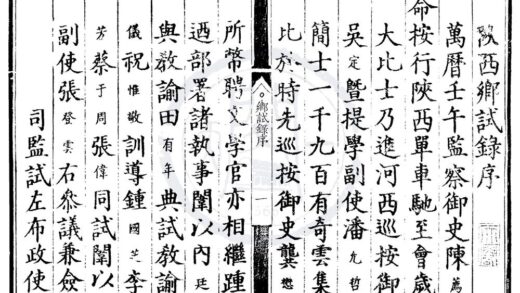 陝西鄉試錄序
萬曆壬午監察御史陳薦
命按行陝西單車馳至會歲
大比士乃進河西巡按御
吳定暨提學副使潘允哲
簡士一千九百有奇雲集
比於時先巡按御史龔懋
鄉試錄序
一
所幣聘文學官亦相繼踵
迺部署諸執事闈以內廷
與教諭田有年典試教諭
儀祝惟敬訓導鍾國芝李
芳蔡于周張偉同試闈以
副使張登雲右叅議兼僉
司監試左布政使